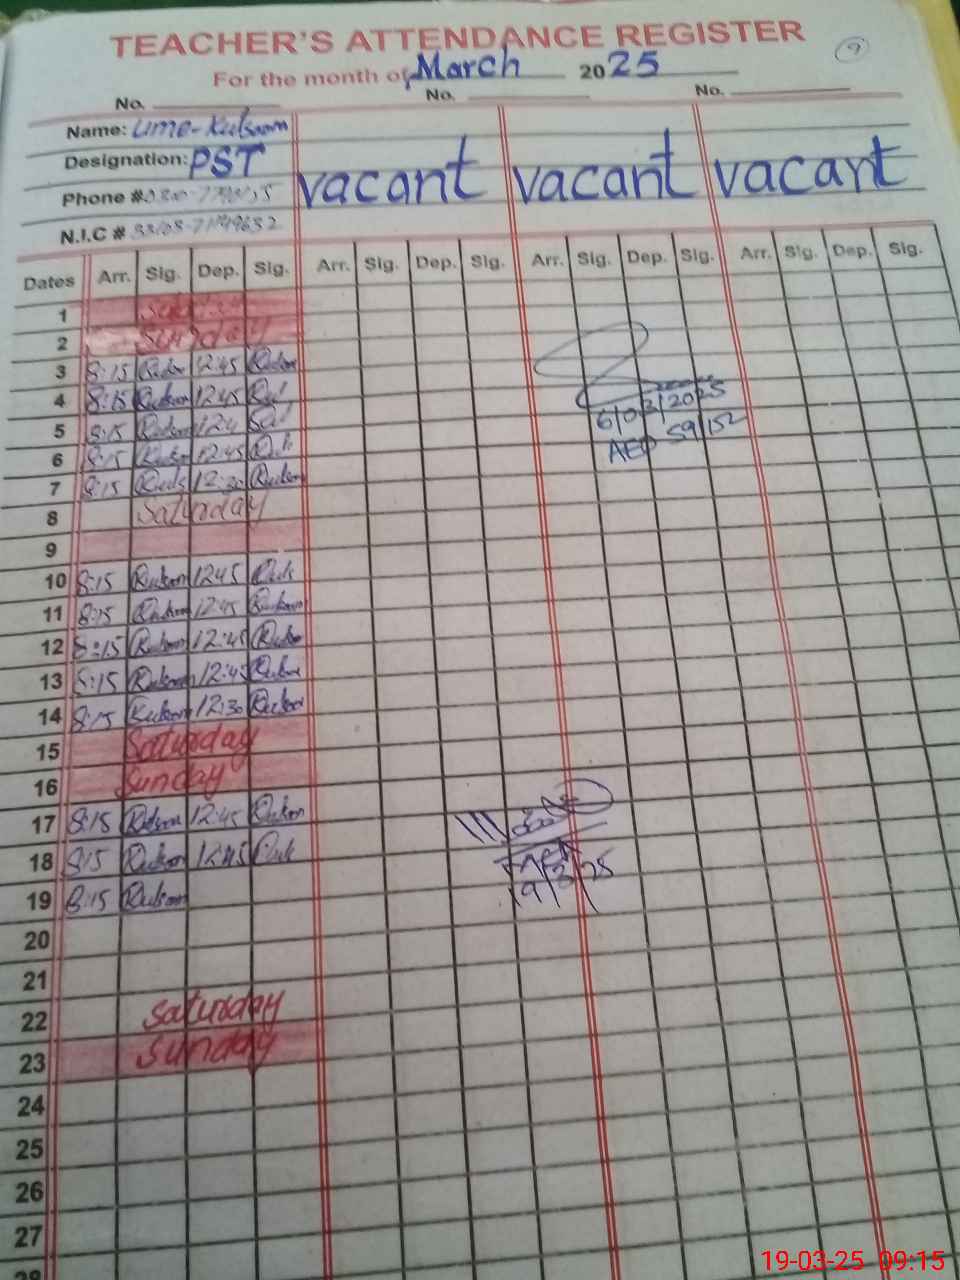 TEACHER'S ATTENDANCE REGISTER
9
For the month of March 2025
No. No. No.
Name: Ume-Kulsoom
Designation: PST vacant vacant vacant
Phone #
N.I.C #
Dates Arr. Sig. Dep. Sig. Arr. Sig. Dep. Sig. Arr. Sig. Dep. Sig. Arr. Sig. Dep. Sig.
1
2 Sunday
3 8:15 12:45
4 8:15 Kulsoom 12:45 Kul
6/03/2025
5 8:15 Kulsoom 12:4
AEO 59/152
6 8:15 12:45
7 8:15 Kuls 12:30 Kulsoom
8 Saturday
9
10 8:15 Kulsoom 1245 Kuls
11 8:15 Kulsoom 12:45 Kulsoom
12 8:15 Kulsoom 12:45
13 8:15 Kulsoom 12:45
14 8:15 Kulsoom 12:30 Kulsoom
15 Saturday
16 Sunday
17 8:15 Kulsoom 12:45 Kulsoom
18 8:15 Kulsoom 12:45
19/3/25
19 8:15 Kulsoom
20
21
22 Saturday
23 Sunday
24
25
26
27
28
19-03-25 09:15